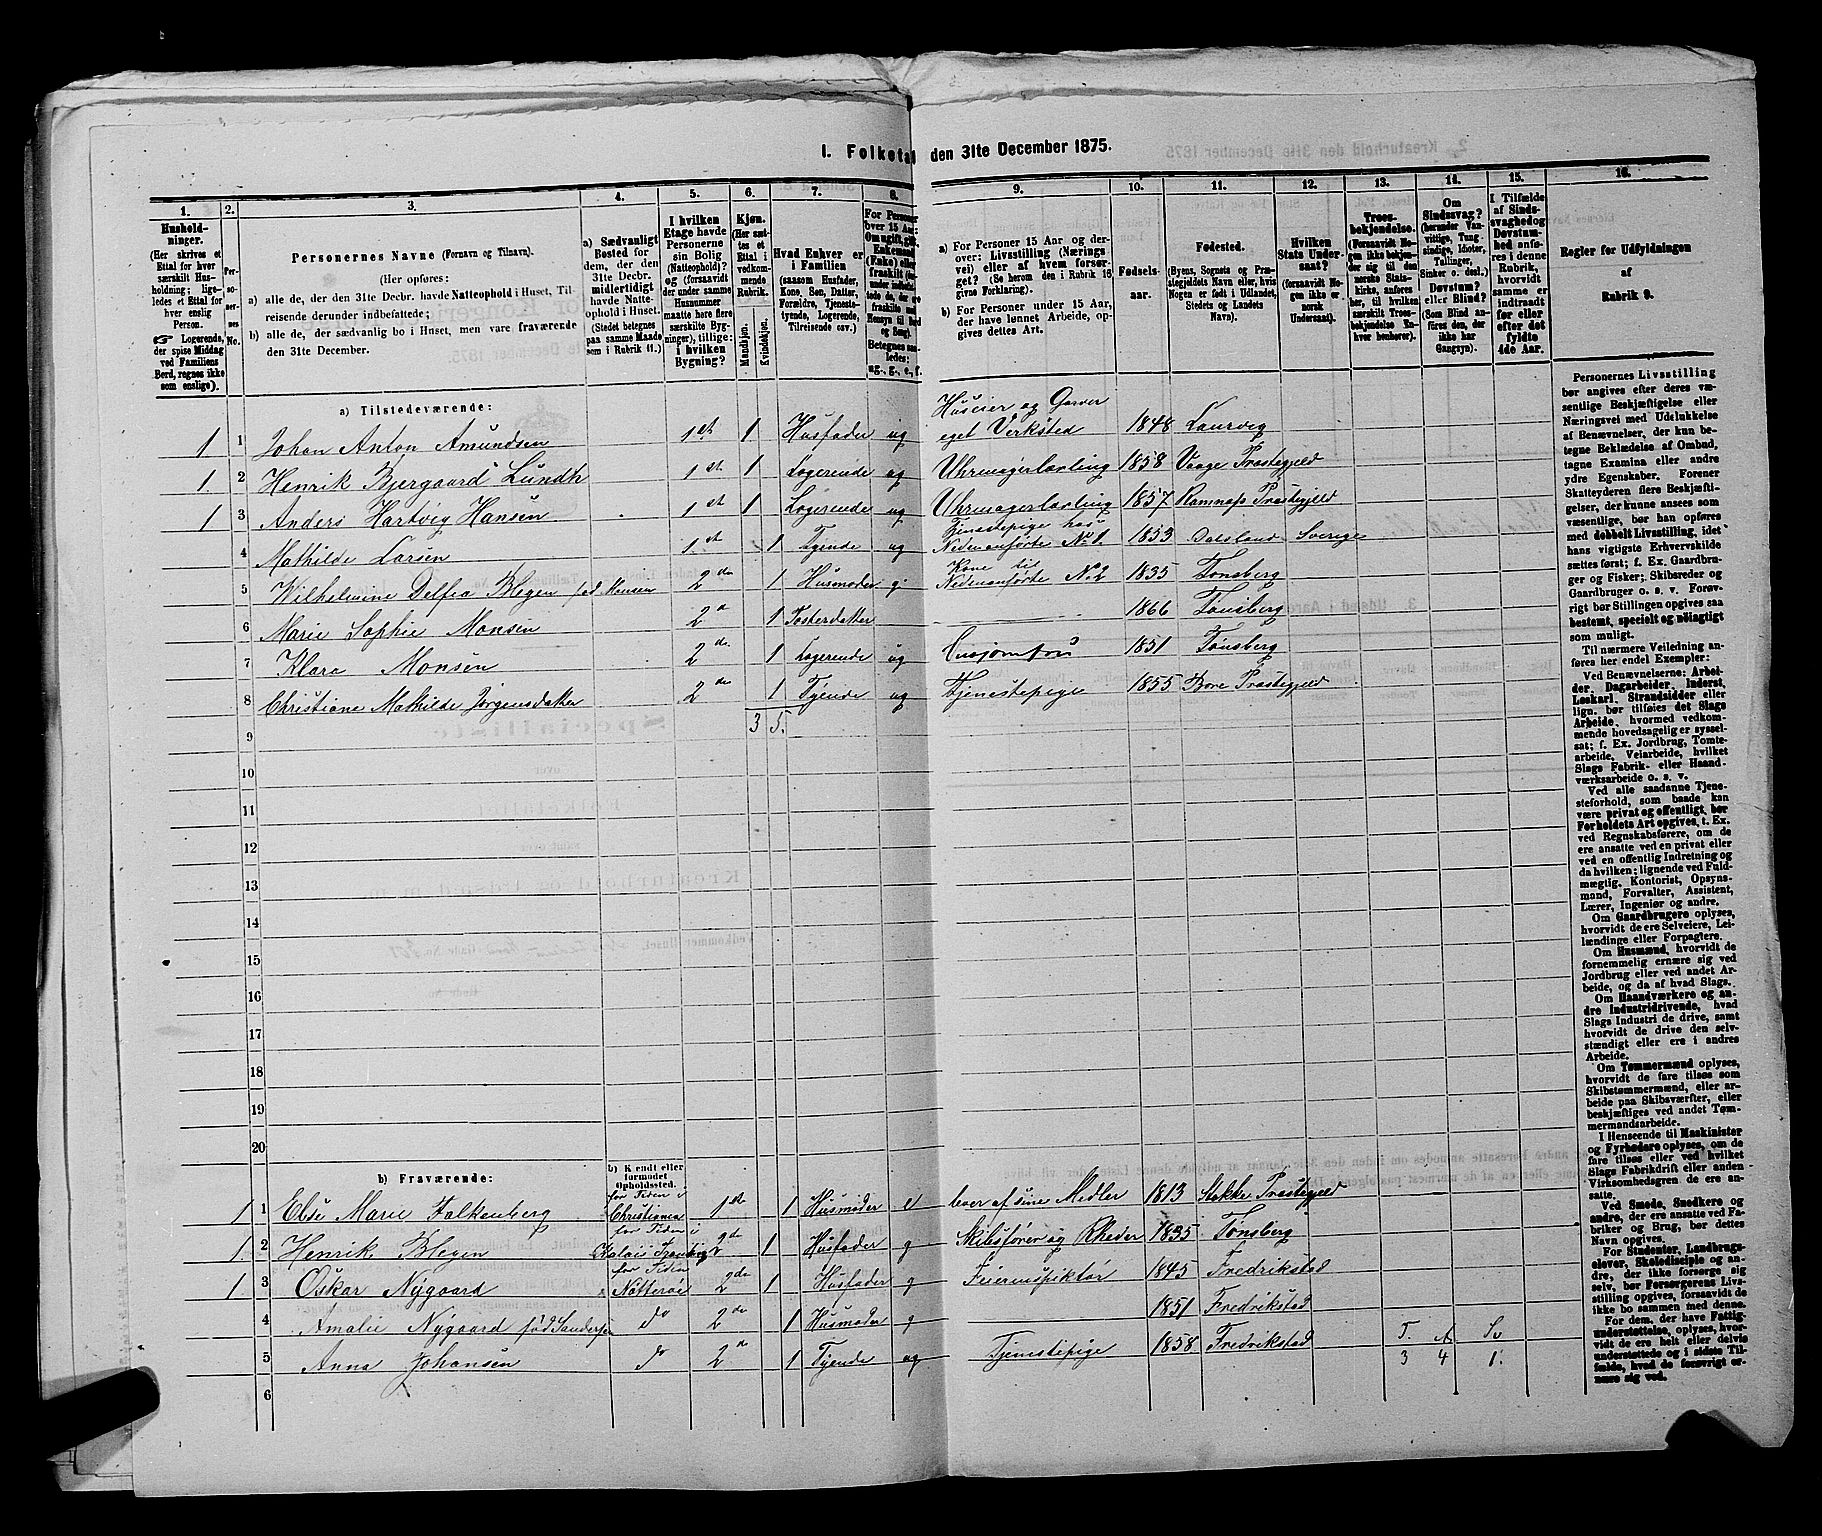 I. Folketal den 31te December 1875.
1.
2.
3.
4.
5.
6.
7.
8.
9.
10.
11.
12.
13.
14.
15.
16.
Hushold-
ninger.
(Her skrives et
Ettal for hver
særskilt Hus-
holdning; lige-
ledes et Ettal for
hver enslig
Person.
☞ Logerende,
der spise Middag
ved Familiens
Bord, regnes ikke
som enslige).
Per-
so-
ner-
nes
No.
Personernes Navne (Fornavn og Tilnavn).
(Her opføres:
a) alle de, der den 31te Decbr. havde Natteophold i Huset, Til-
reisende derunder indbefattede;
b) alle de, der sædvanlig bo i Huset, men vare fraværende
den 31te December.
a) Sædvanligt
Bosted for
dem, der den
31te Decbr.
midlertidigt
havde Natte-
ophold i Huset.
(Stedet betegnes
paa samme Maade
som i Rubrik 11.)
I hvilken
Etage havde
Personerne
sin Bolig
(Natteophold)?
og (forsaavidt
der under samme
Husnummer
maatte høre flere
særskilte Byg-
ninger), tillige:
i hvilken
Bygning?
Kjøn.
(Her sæt-
tes et
Ettal i
vedkom-
mende
Rubrik.
Mandkjøn.
Kvindekjøn.
Hvad Enhver er
i Familien
(saasom Husfader,
Kone, Søn, Datter,
Forældre, Tjeneste-
tyende, Logerende,
Tilreisende osv.)
For Personer
over 15 Aar:
Om ugift, gift,
Enkemand
(Enke) eller
fraskilt
Betegnes saa-
ledes:
ug., g., e., f.
a) For Personer 15 Aar og der-
over: Livsstilling (Nærings
vei) eller af hvem forsør-
get? (Se herom den i Rubrik 16
givne Forklaring.)
b) For Personer under 15 Aar,
der have lønnet Arbeide, op-
gives dettes Art.
Fødsels-
aar.
Fødested.
(Byens, Sognets og Præ-
stegjeldets Navn eller, hvis
Nogen er født i Udlandet,
Stedets og Landets
Navn).
Hvilken
Stats Under-
saat?
(forsaavidt No-
gen ikke er
norsk
Undersaat).
Troes-
bekjendelse.
(Forsaavidt No-
gen ikke bekjen-
der sig til den
norske Stats-
kirke, anføres
her, til hvilken
særskilt Troes-
bekjendelse En-
hver henhører).
Om
Sindssvag?
(herunder Van-
vittige, Tung-
sindige, Idioter,
Tullinger,
Sinker o. desl.)
Døvstum?
eller Blind?
(Som Blind an-
føres den, der
ikke har
Gangsyn).
I Tilfælde
af Sinds-
svaghed og
Døvstum-
hed anfø-
res i denne
Rubrik,
hvorvidt
samme er
indtraadt
før eller
efter det
fyldte
4de Aar.
Regler for Udfyldningen
af
Rubrik 9.
a) Tilstedeværende:
1 1 Johan Anton Amundsen 1st 1 Husfader ug Huseier og Garver eget Verksted 1848 Laurvig
1. 2 Henrik Bjergaard Lundh 1st 1 Logerende ug Uhrmagerlærling 1858 Vaage Præstegjeld
1 3 Anders Hartvig Hansen 1st 1 Logerende ug Uhrmagerlærling 1857 Ramnæs Præstegjeld
4 Mathilde Larsen 1st 1 Tyende ug Tjenestepige hos Nedenanførte No 1. 1853 Dalsland Sverige
5 Wilhelmine Delfia Blegen fød Monsen 2de 1 Husmoder g. Kone til Nedenanførte No 2 1835 Tønsberg
6 Marie Sophie Monsen 2d 1 Fosterdatter 1866 Tønsberg
7 Klara Monsen 2de 1 Logerende ug 1851 Tønsberg
8 Christiane Mathilde Jørgensdatter 2de 1 Tyende ug Tjenestepige 1855 Borre Præstegjeld
9 3 5.
10
11
12
13
14
15
16
17
18
19
20
b) Fraværende:
b) Kjendt eller
formodet
Opholdssted.
1 1 Else Marie Falkenberg for Tiden i Christiania 1st 1 Husmoder e lever af sine Midler 1813 Stokke Præstegjeld
1 2 Henrik Blegen for Tiden i Kalais Frankrig 2de 1 Husfader g Skibsfører og Rheder 1835 Tønsberg
1 3 Oskar Nygaard for Tiden Nøtterøe 2de 1 Husfader g Feierinspiktør 1845 Fredrikstad
4 Amalie Nygaard fød Sandersen do 2de 1 Husmoder g 1851 Fredrikstad
5 Anna Johansen do 2d 1 Tyende ug Tjenestepige 1858 Fredrikstad
T. A Sv
3 4 1.
6
Personernes Livsstilling
bør angives efter deres væ-
sentlige Beskjæftigelse eller
Næringsvei med Udelukkelse
af Benævnelser, der kun be-
tegne Beklædelse af Ombud,
tagne Examina eller andre
ydre Egenskaber. Forener
Skatteyderen flere Beskjæfti-
gelser, der kunne ansees som
væsentlige, bør han opføres
med dobbelt Livsstilling, idet
hans vigtigste Erhvervskilde
sættes først; f. Ex. Gaardbru-
ger og Fisker; Skibsreder og
Gaardbruger o. s. v. Forøv-
rigt bør Stillingen opgives saa
bestemt, specielt og nöiagtigt
som muligt.
Til nærmere Veiledning an-
føres her endel Exempler:
Ved Benævnelserne: Arbei-
der, Dagarbeider, Inderst,
Løskarl, Strandsidder eller
lign. bør tilføies det Slags
Arbeide, hvormed vedkom-
mende hovedsagelig er syssel-
sat; f. Ex. Jordbrug, Tomte-
arbeide, Veiarbeide, hvilket
Slags Fabrik- eller Haand-
værksarbeide o. s. v.
Ved alle saadanne Tjene-
steforhold, som baade kan
være privat og offentligt, bør
Forholdets Art opgives, t. Ex.
ved Regnskabsførere, om de
ere ansatte ved en privat eller
ved en offentlig Indretning og
da hvilken; lignende ved Fuld-
mægtig, Kontorist, Opsyns-
mand, Forvalter, Assistent,
Lærer, Ingeniør og andre.
Om Gaardbrugere oplyses,
hvorvidt de ere Selveiere, Lei-
lændinge eller Forpagtere.
Om Husmænd, hvorvidt de
fornemmelig ernære sig ved
Jordbrug eller ved andet Ar-
beide, og da af hvad Slags.
Om Haandværkere og an-
dre Industridrivende, hvad
Slags Industri de drive, samt
hvorvidt de drive den selv-
stændigt eller ere i andres
Arbeide.
Om Tømmermænd oplyses,
hvorvidt de fare tilsøs som
Skibstømmermænd, eller ar-
beide paa Skibsværfter, eller
beskjæftiges ved andet Tøm-
mermandsarbeide.
I Henseende til Maskinister
og Fyrbødere oplyses, om de
fare tilsøs eller ved hvilket
Slags Fabrikdrift eller anden
Virksomhedsgren de ere an-
satte.
Ved Smede, Snedkere og
andre, der ere ansatte ved Fa-
briker og Brug, bør dettes
Navn opgives.
For Studenter, Landbrugs-
elever, Skoledisciple og an-
dre, der ikke forsørge sig
selv, bør Forsørgerens Livs-
stilling opgives, forsaavidt de
ikke bo sammen med denne.
For dem, der have Fattig-
understøttelse, oplyses, hvor-
vidt de ere helt eller delvis
understøttede og i sidste Til-
fælde, hvad de forøvrigt er-
nære sig ved.